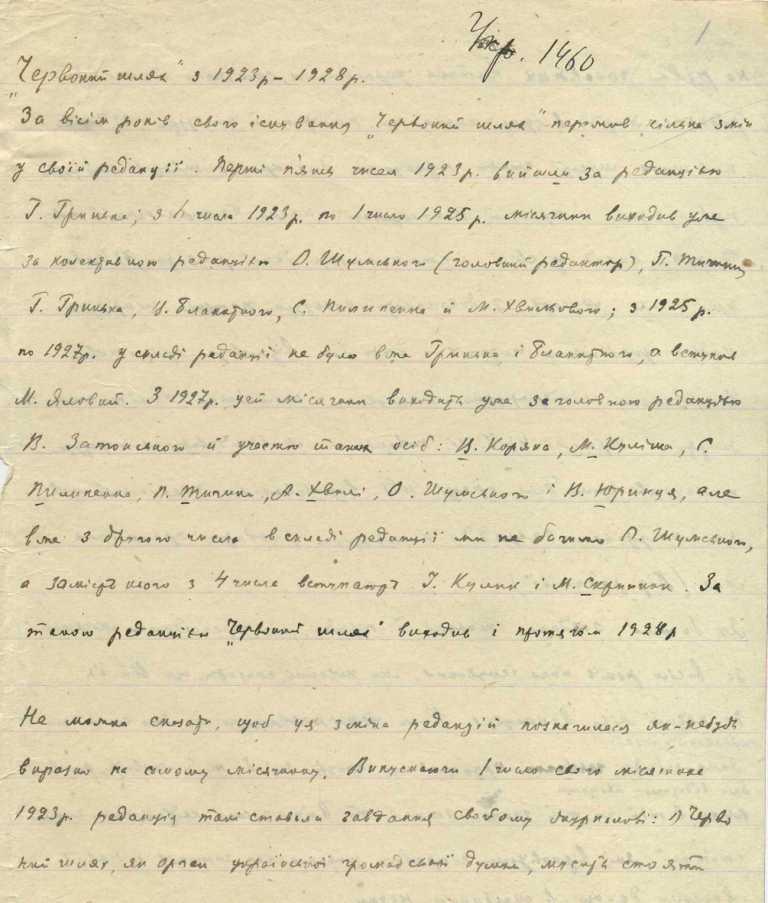 Укр. 1460
1
"Червоний шлях" з 1923р – 1928р.
За вісім років свого існування "Червоний шлях" перемов кілька змін
у своїй редакції. Перші п'ять чисел 1923р. вийшли за редакцією
Г. Гринька; з 6 числа 1923р. по 1 число 1925р. місячник виходив уже
за колективною редакцією О. Шумського (головний редактор), П. Тичини,
Г. Гринька, В. Блакитного, С. Пилипенка й М. Хвильового; з 1925р.
по 1927р. у складі редакції не було вже Гринька і Блакитного, а вступив
М. Яловий. З 1927р. цей місячник виходить уже за головною редакцією
В. Затонського й участю таких осіб: В. Коряка, М. Куліша, С.
Пилипенка, П. Тичини, А. Хвилі, О. Шумського і В. Юринця, але
вже з другого числа в складі редакції ми не бачимо О. Шумського,
а замість нього з 4 числа вступають І. Кулик і М. Скрипник. За
такою редакцією "Червоний шлях" виходив і протягом 1928р
Не можна сказати, щоб ця зміна редакцій позначилася як-небудь
виразно на самому місячнику. Випускаючи 1 число свого місячника
1923р. редакція такі ставила завдання своєму журналові: "Черво
ний шлях, як орган української громадської думки, мусить стояти